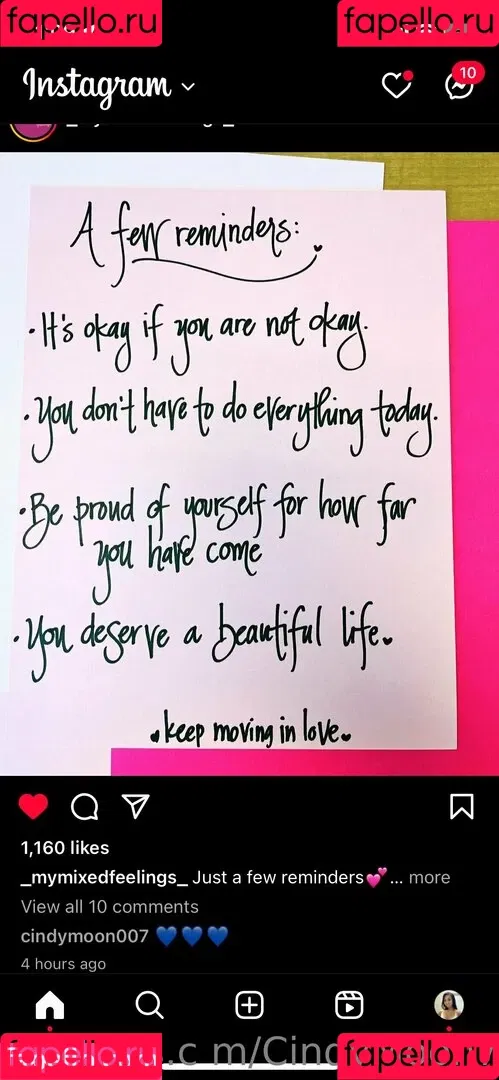 fapello.ru fapello.ru
Instagram
10
A few reminders:
· It's okay if you are not okay.
· You don't have to do everything today.
· Be proud of yourself for how far
you have come
· You deserve a beautiful life.
keep moving in love
1,160 likes
_mymixedfeelings_ Just a few reminders💕... more
View all 10 comments
cindymoon007 💙💙💙
4 hours ago
fapello.ru fapello.ru